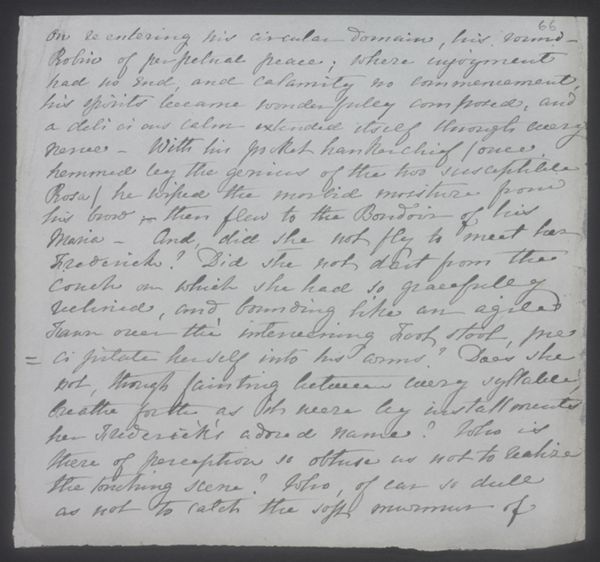 66
On reentering his circular domain, his round-
Robin of perpetual peace; where injoyment
had no End, and calamity no commencement,
his spirits became wonderfulley composed, and
a deli cious calm extended itself through every
nerve - With his pocket hankerchief (once
hemmed bey the genius of the too susceptible
Rosa) he wiped the morbid moisture from
his brow - then flew to the Boudoir of his
Maria - And, did she not fly to meet her
Frederick? Did she not dart from the
Couch on which she had so gracefulley
reclined, and bounding like an agile
Fawn over the intervening Foot stool, pre
= ci pitate herself into his arms? Does she
not, though fainting between every syllable,
breathe forth as it were bey installments
her Frederick's adored name? Who is
there of perception so obtuse as not to realize
the touching scene? Who, of ear so dull
as not to catch the soft murmur of